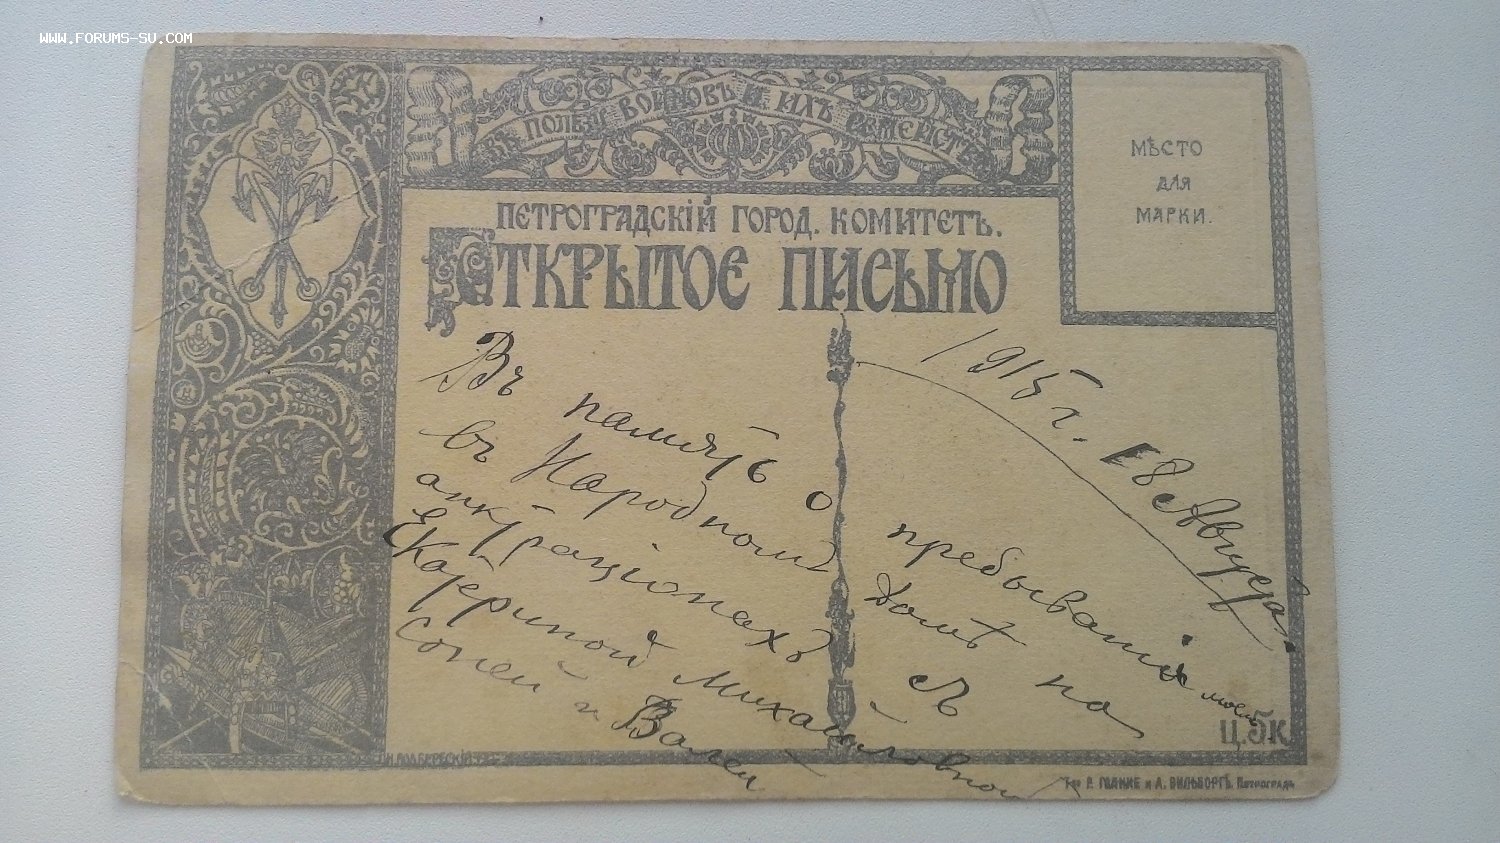 WWW.FORUMS-SU.COM
ВЪ ПОЛЬЗУ ВОИНОВЪ И ИХЪ СЕМЕЙСТВЪ
МѢСТО
ДЛЯ
МАРКИ.
ПЕТРОГРАДСКІЙ ГОРОД. КОМИТЕТЪ.
ОТКРЫТОЕ ПИСЬМО
1915 г. 18 Августа.
Въ память о пребываніи моемъ
въ Народномъ домѣ на
аттракціонахъ съ
Екатериной Михайловной
Соней и Валей
Ц. 5 К.
Т-во Р. ГОЛИКЕ и А. ВИЛЬБОРГЪ. Петроградъ